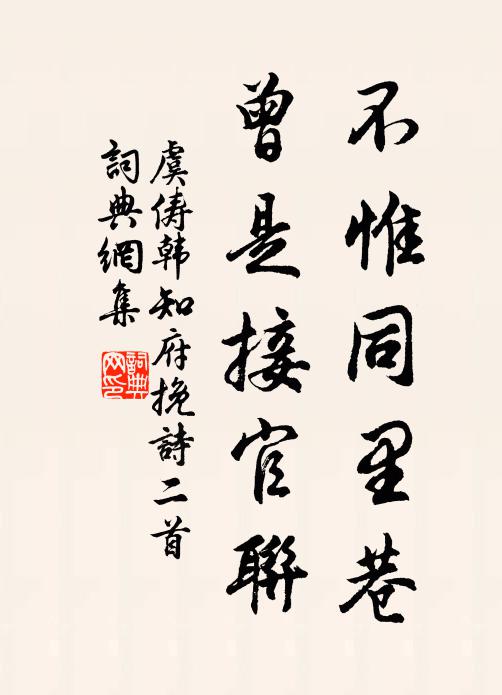 不惟同里巷
曾是接官聯
虞儔韩知府挽詩二首
詞典網集
詞典网印